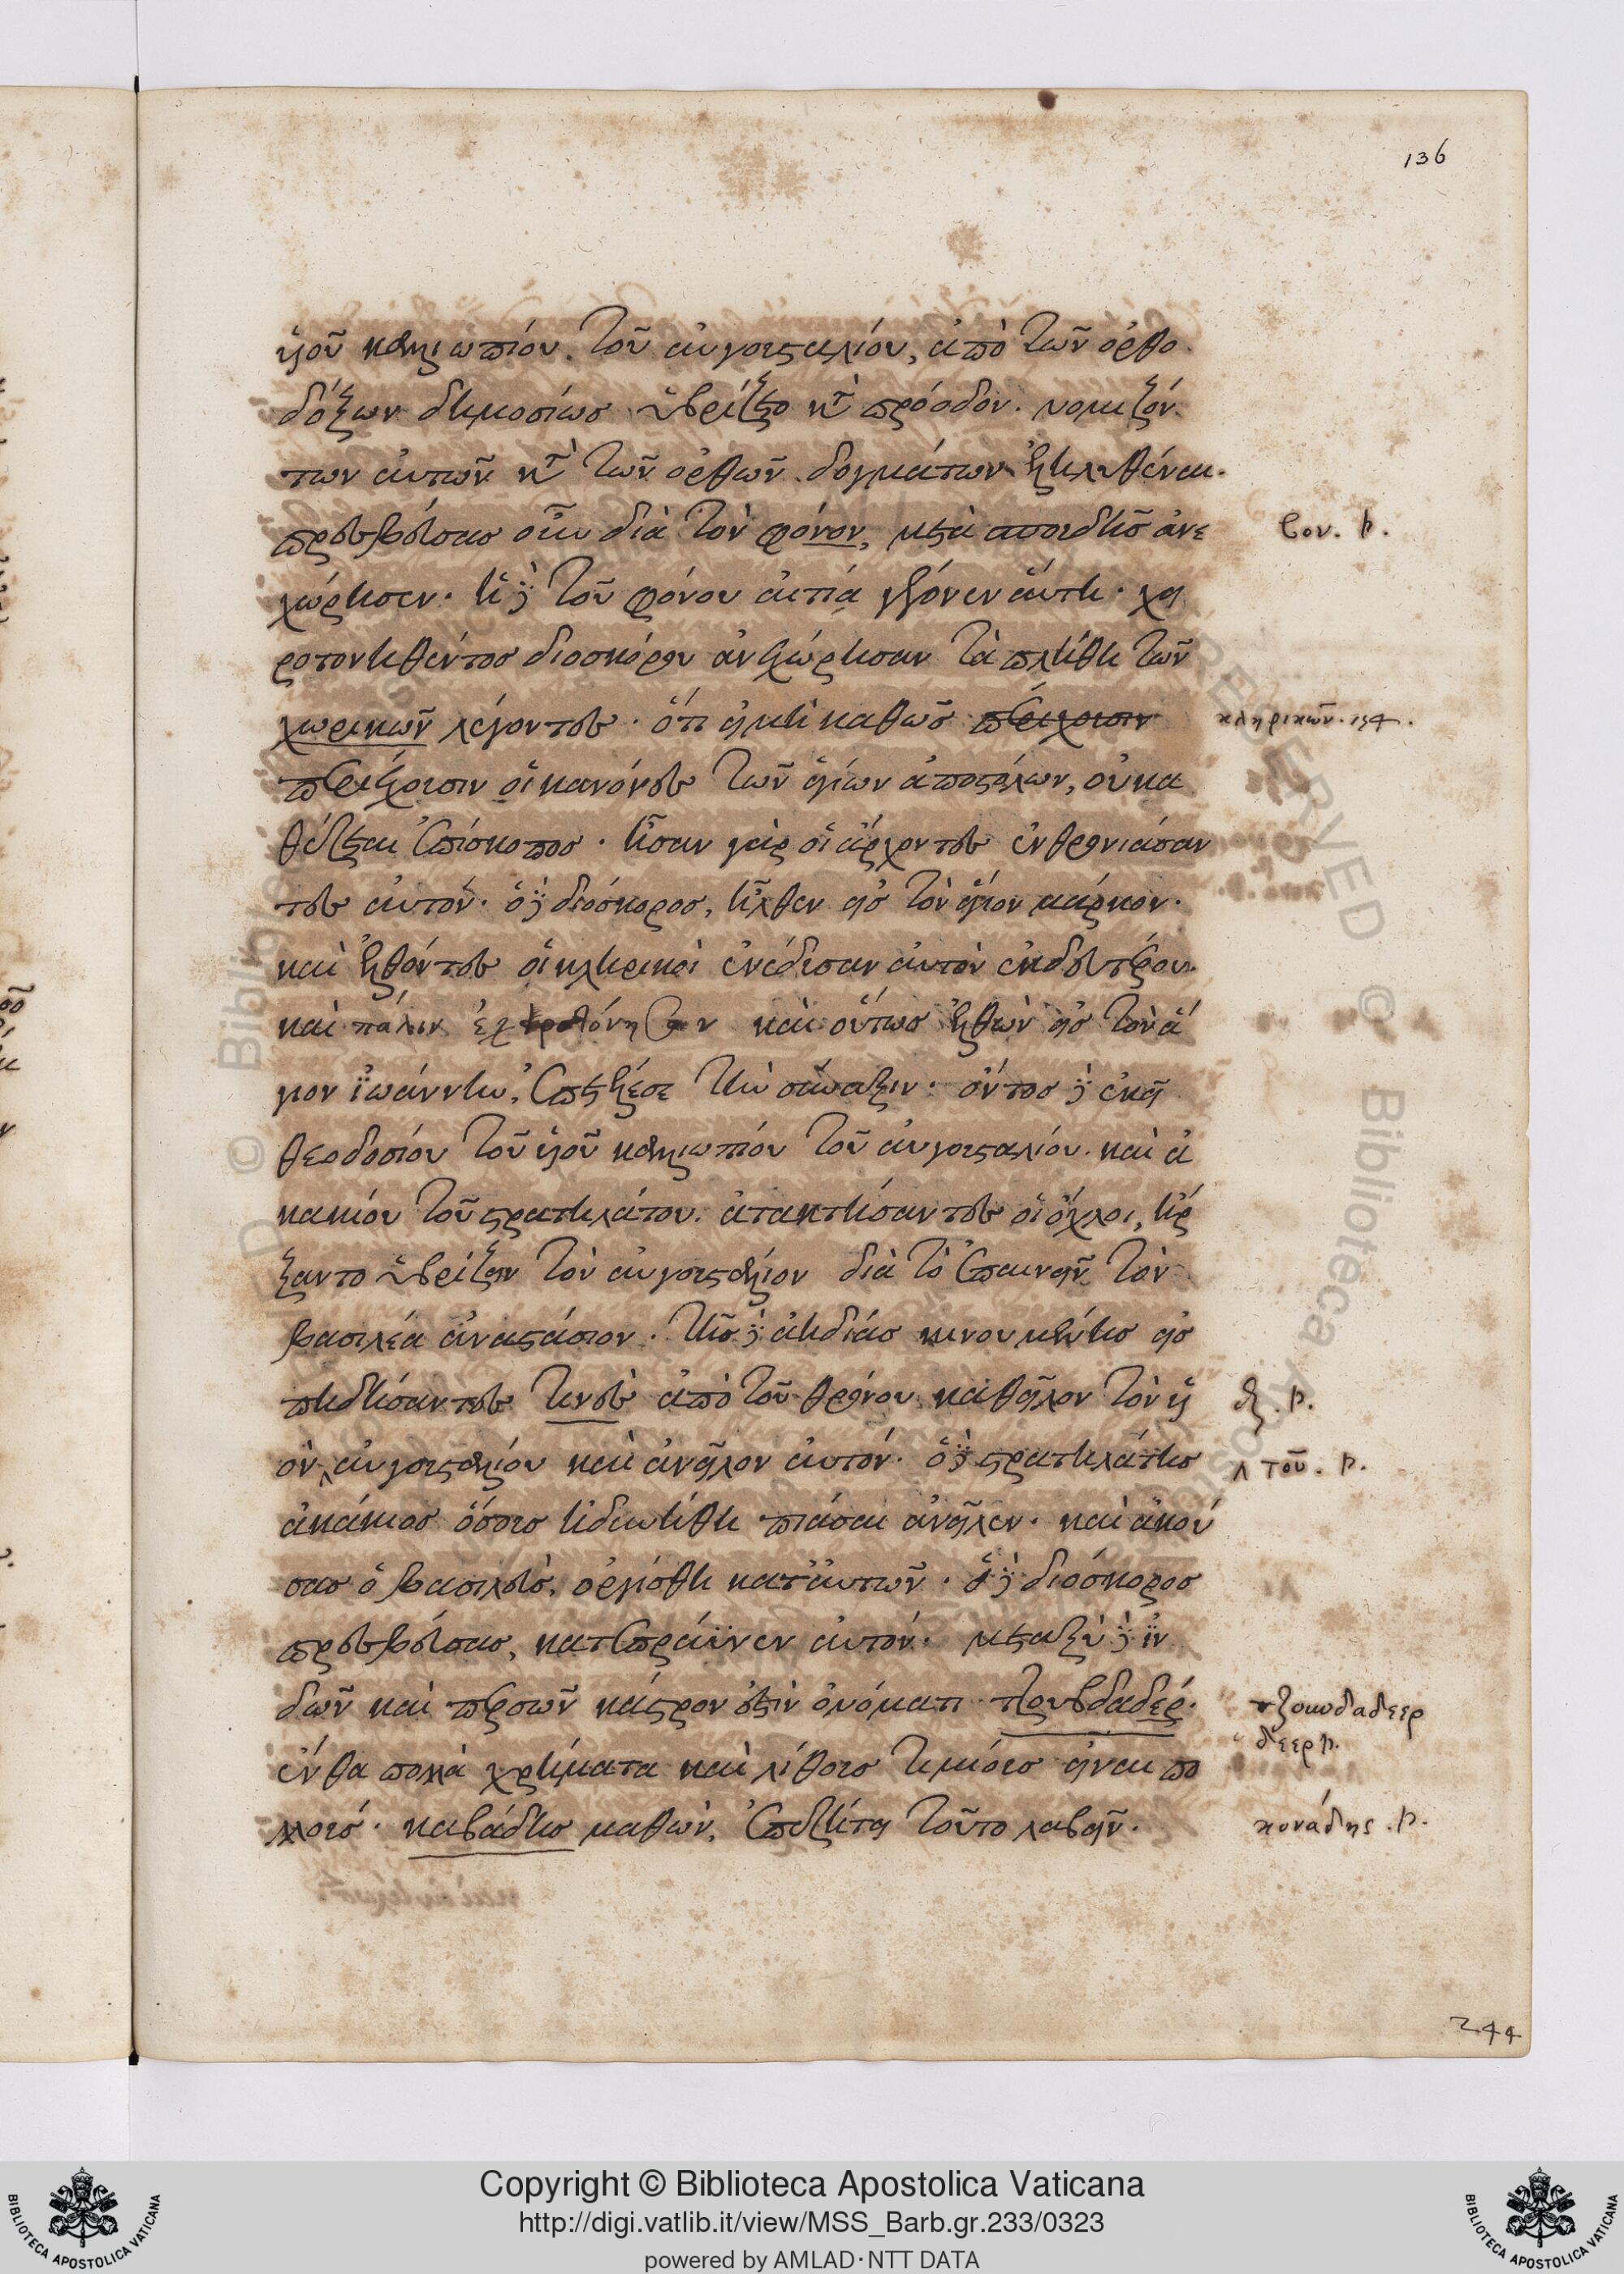 136
υἱοῦ καλλιωπίου. τοῦ αὐγουσταλίου, ἀπὸ τῶν ὀρθο
δόξων δημοσίως ὑβρίζετο κατὰ πρόοδον. νομιζόν
των αὐτῶν κατὰ τῶν ὀρθῶν δογμάτων ἐληλυθέναι.
πρεσβεύσας οὖν διὰ τὸν φόνον, μετὰ σπουδῆς ἀνε
χώρησεν. ἡ δὲ τοῦ φόνου αἰτία γέγονεν αὕτη. χει
ροτονηθέντος διοσκόρου ἀνεχώρησαν τὰ πλήθη τῶν
χωρικῶν λέγοντες. ὅτι εἰ μὴ καθὼς περιέχουσιν
περιέχουσιν οἱ κανόνες τῶν ἁγίων ἀποστόλων, οὐ κα
θέζεται ἐπίσκοπος. ἦσαν γὰρ οἱ ἄρχοντες ἐνθρονιάσαν
τες αὐτόν. ὁ δὲ διόσκορος, ἦλθεν εἰς τὸν ἅγιον μάρκον.
καὶ ἐλθόντες οἱ κληρικοὶ ἐνέδυσαν αὐτὸν ἐκ δευτέρου.
καὶ πάλιν ἐχειροτόνησαν καὶ οὕτως ἐλθὼν εἰς τὸν ἅ
γιον ἰωάννην, ἐπετέλεσε τὴν σύναξιν. ὄντος δὲ ἐκεῖ
θεοδοσίου τοῦ υἱοῦ καλλιωπίου τοῦ αὐγουσταλίου. καὶ ἀ
κακίου τοῦ στρατηλάτου. ἀτακτήσαντες οἱ ὄχλοι, ἤρ
ξαντο ὑβρίζειν τὸν αὐγουστάλιον διὰ τὸ ἐπαινεῖν τὸν
βασιλέα ἀναστάσιον. τῆς δὲ ἀηδίας κινουμένης εἰς
πηδήσαντες τινὲς ἀπὸ τοῦ θρόνου καθεῖλον τὸν υἱ
ὸν αὐγουσταλίου καὶ ἀνεῖλον αὐτόν. ὁ δὲ στρατηλάτης
ἀκάκιος ὅσους ἠδυνήθη πιάσαι ἀνεῖλεν. καὶ ἀκού
σας ὁ βασιλεὺς, ὠργίσθη κατ' αὐτῶν. ὁ δὲ διόσκορος
πρεσβεύσας, κατεπράϋνεν αὐτόν. μεταξὺ δὲ ἰν
δῶν καὶ περσῶν κάστρον ἐστὶν ὀνόματι τζουβδαδερ.
ἔνθα πολλὰ χρήματα καὶ λίθους τιμίους εἶναι πο
λλούς. καβάδης μαθὼν, ἐπεζήτει τοῦτο λαβεῖν.
ξον. p.
κληρικῶν.
ἐξ. p.
λ τοῦ. p.
τζουνδαδεερ
δεερ p.
κουάδης. p.
244
Copyright © Biblioteca Apostolica Vaticana
http://digi.vatlib.it/view/MSS_Barb.gr.233/0323
powered by AMLAD·NTT DATA
BIBLIOTECA APOSTOLICA VATICANA
BIBLIOTECA APOSTOLICA VATICANA